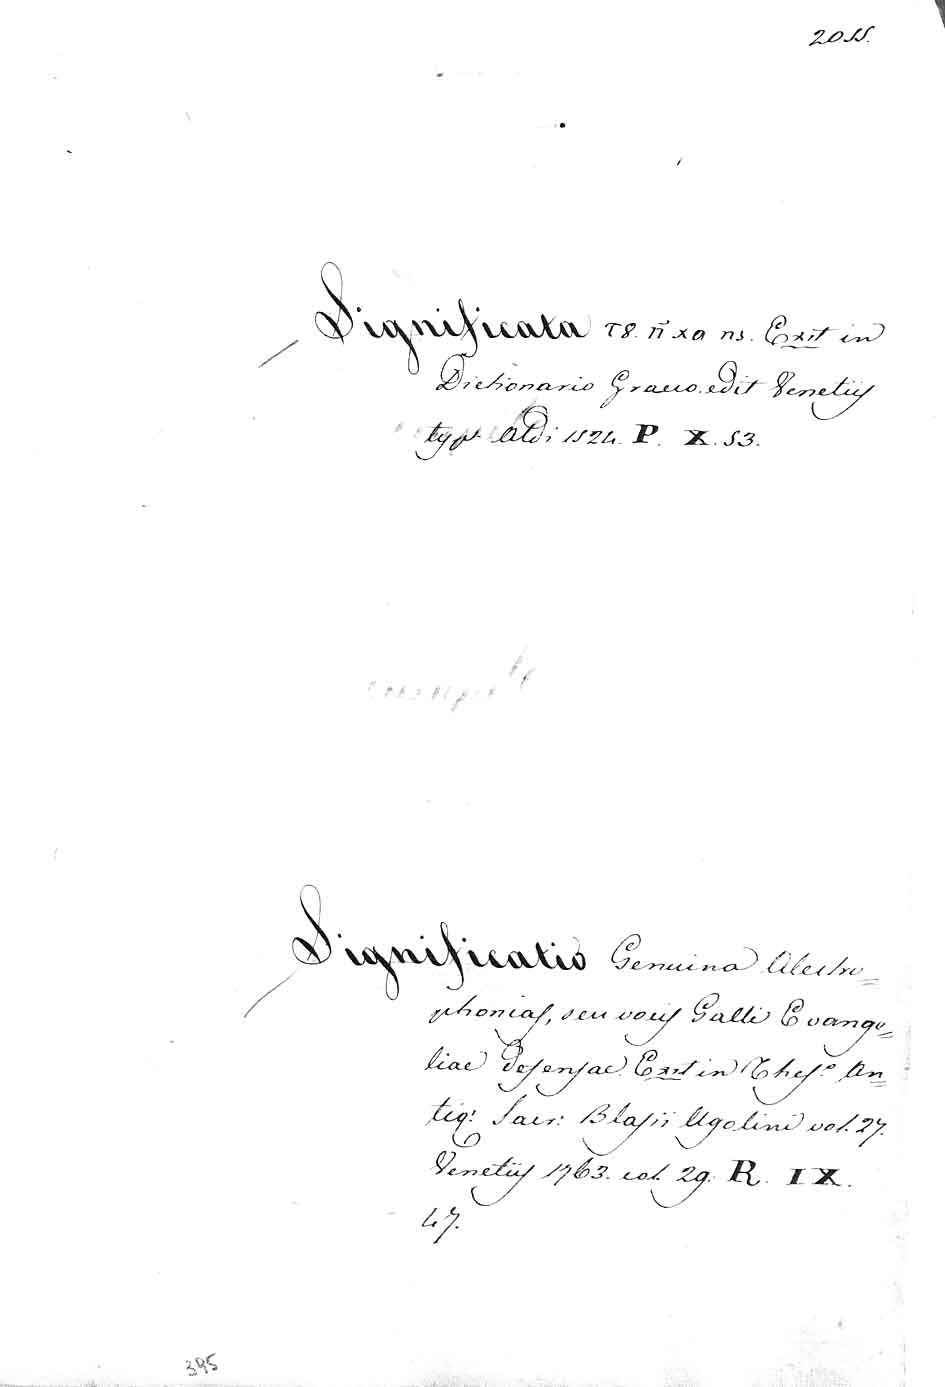 2055.
Significata τȣ. ῆ. χα ης. Exst in
Dictionario Graeco. edit Venetiis
typ. Aldi 1524. P. X. 53.
Significatio Genuina Alectro=
phonias, seu vocis Galli Evange=
liae defensae. Exst in Thes.º An=
tiq: Sacr: Blasii Ugolini vol. 27.
Venetiis 1763. col. 29. R. IX.
47.
395